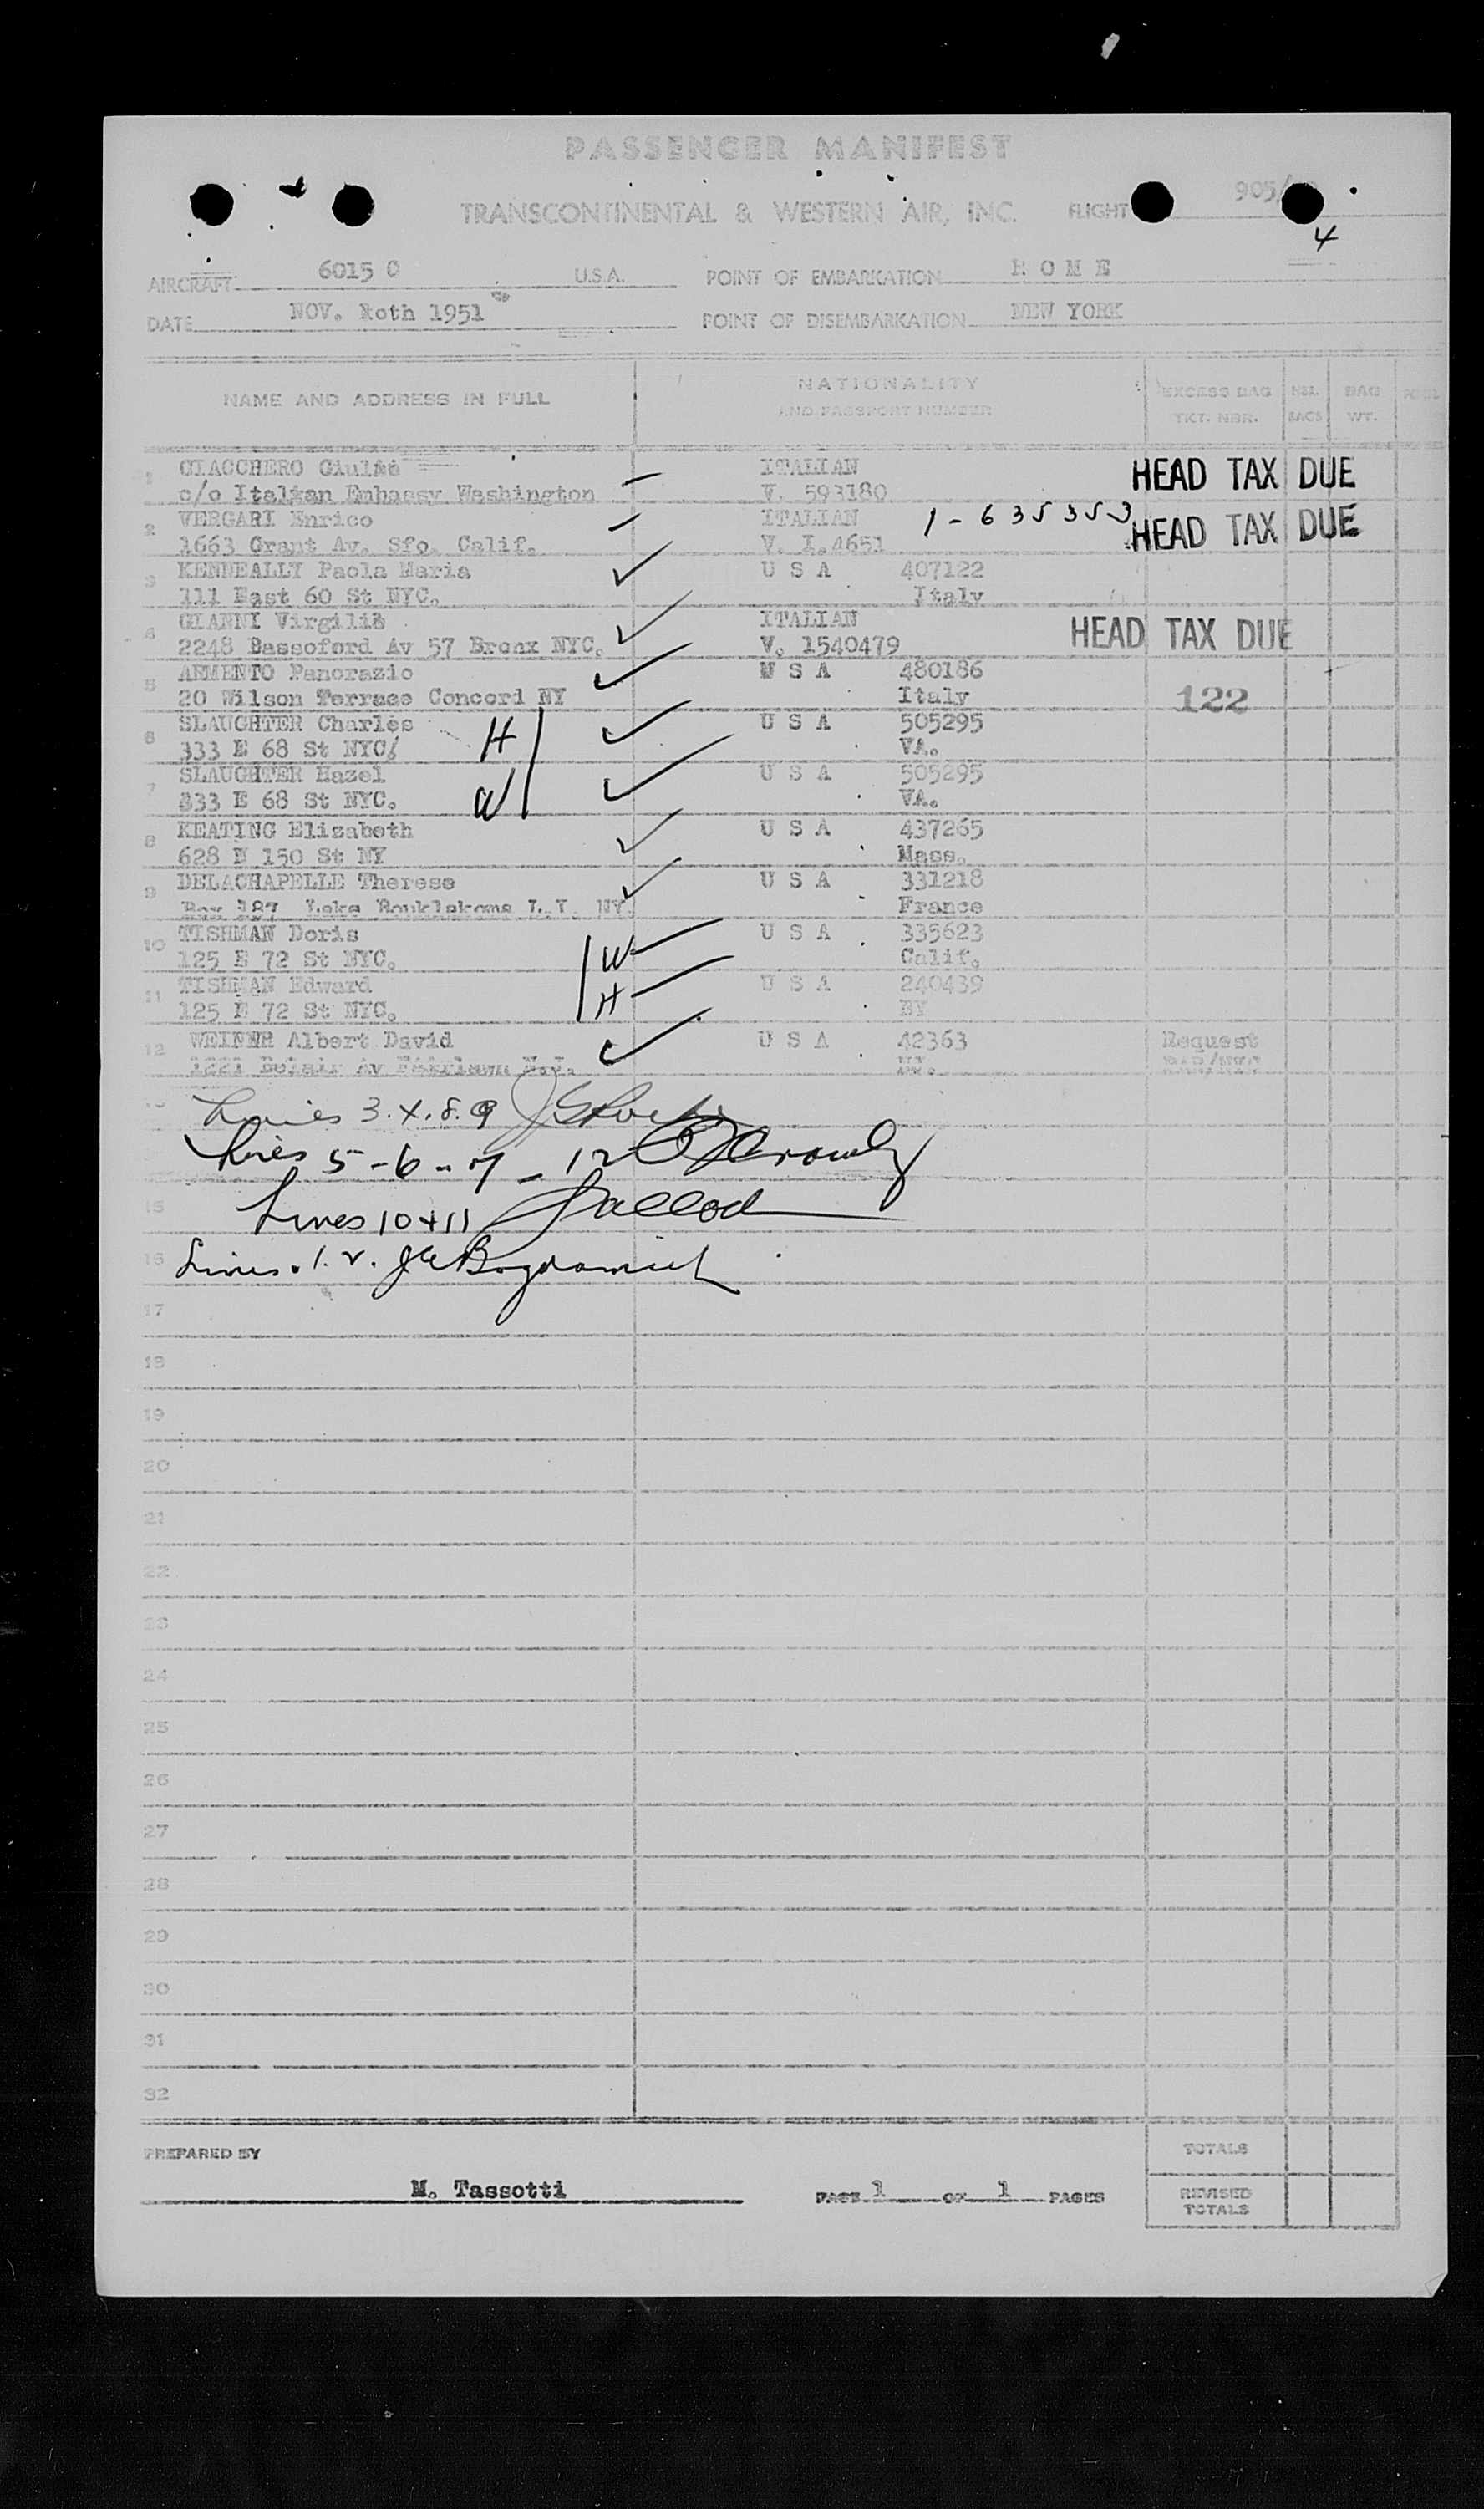 PASSENGER MANIFEST
TRANSCONTINENTAL & WESTERN AIR, INC. FLIGHT 905/
4
AIRCRAFT 6015 C U.S.A. POINT OF EMBARKATION R O M E
DATE NOV. Roth 1951 POINT OF DISEMBARKATION NEW YORK
NAME AND ADDRESS IN FULL NATIONALITY AND PASSPORT NUMBER EXCESS BAG TKT. NBR. NBR. BAGS BAG WT.
1 GIACCHERO ITALIAN HEAD TAX DUE
c/o Italian Embassy Washington V. 593180
2 VERGARI Enrico ITALIAN 1-635353 HEAD TAX DUE
1663 Grant Av. Sfo. Calif. V. I.4651
3 KENNEALLY Paola Maria U S A 407122
111 East 60 St NYC. Italy
4 GIANNI ITALIAN HEAD TAX DUE
2248 Bassoford Av 57 Bronx NYC. V. 1540479
5 ARMENTO Pancrazio U S A 480186
20 Wilson Terrace Concord NY Italy 122
6 SLAUGHTER Charles H U S A 505295
333 E 68 St NYC/ VA.
7 SLAUGHTER Hazel U S A 505295
333 E 68 St NYC. W VA.
8 KEATING Elizabeth U S A 437265
628 E 150 St NY Mass.
9 DELACHAPELLE Therese U S A 331218
Box 187 L.I. NY France
10 TISHMAN Doris W U S A 335623
125 E 72 St NYC. Calif.
11 TISHMAN Edward H U S A 240439
125 E 72 St NYC. NY
12 WEINER Albert David U S A 42363 Request
1221 Av N.J.
Lines 3.4.8.9
Lines 5-6-7-12
15 Lines 10+11
16 Lines 1.2.
17
18
19
20
21
22
23
24
25
26
27
28
29
30
31
32
PREPARED BY TOTALS
M. Tassotti PAGE 1 OF 1 PAGES REVISED TOTALS